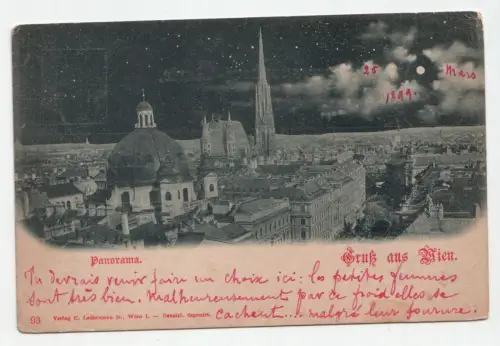 25 Mars
1899.
Panorama.
Gruß aus Wien.
Tu devrais venir faire un choix ici: les petites femmes
sont très bien. Malheureusement par ce froid elles se
cachent... malgré leur fourure.
93 Verlag C. Ledermann jr., Wien I. — Gesetzl. deponirt.